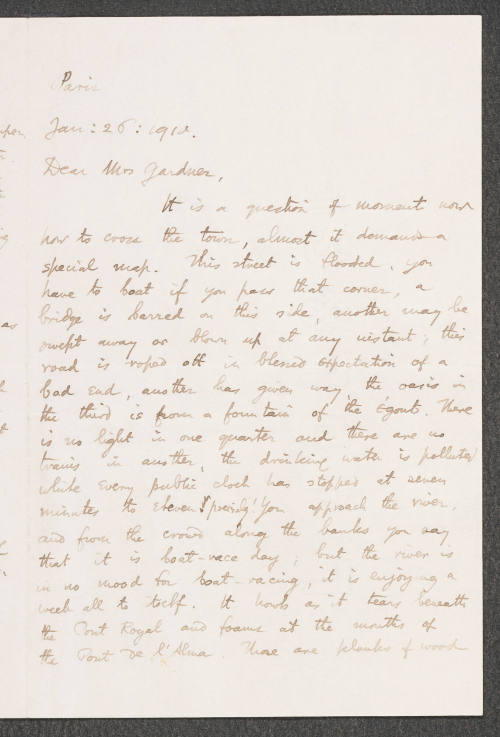 Paris
Jan: 26: 1910.
Dear Mrs Gardner,
It is a question of moment now
how to cross the town, almost it demands a
special map. This street is flooded, you
have to boat if you pass that corner, a
bridge is barred on this side, another may be
swept away or blown up at any instant; this
road is roped off in blessed expectation of a
bad end, another has given way, the oasis in
the third is from a fountain of the Égouts. There
is no light in one quarter and there are no
trains in another, the drinking water is polluted
while every public clock has stopped at seven
minutes to eleven! You approach the river,
and from the crowd along the banks you say
that it is boat-race day; but the river is
in no mood for boat-racing, it is enjoying a
week all to itself. It howls as it tears beneath
the Pont Royal and foams at the mouths of
the Pont de l'Alma. There are planks of wood
as